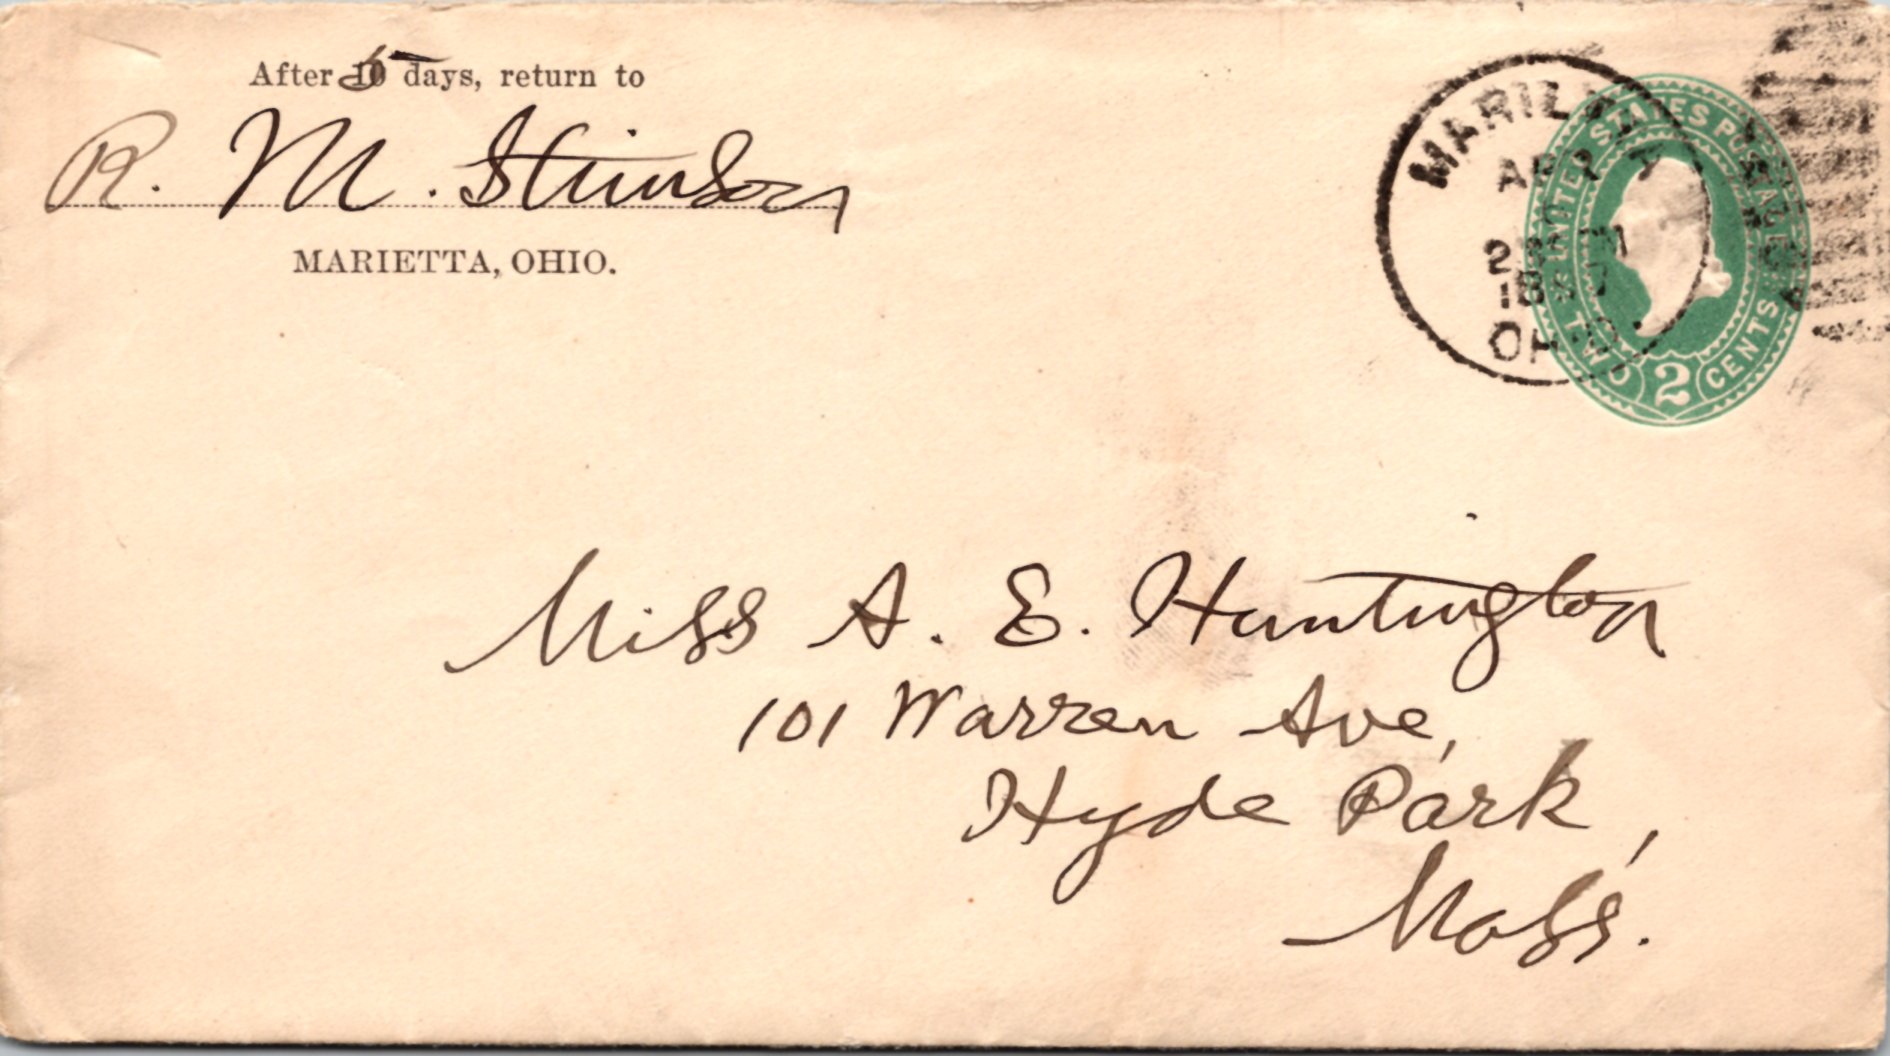 After 5 days, return to
R. M. Stimson
MARIETTA, OHIO.
APR 7
OHIO
UNITED STATES POSTAGE
TWO 2 CENTS
Miss A. E. Huntington
101 Warren Ave,
Hyde Park,
Mass.